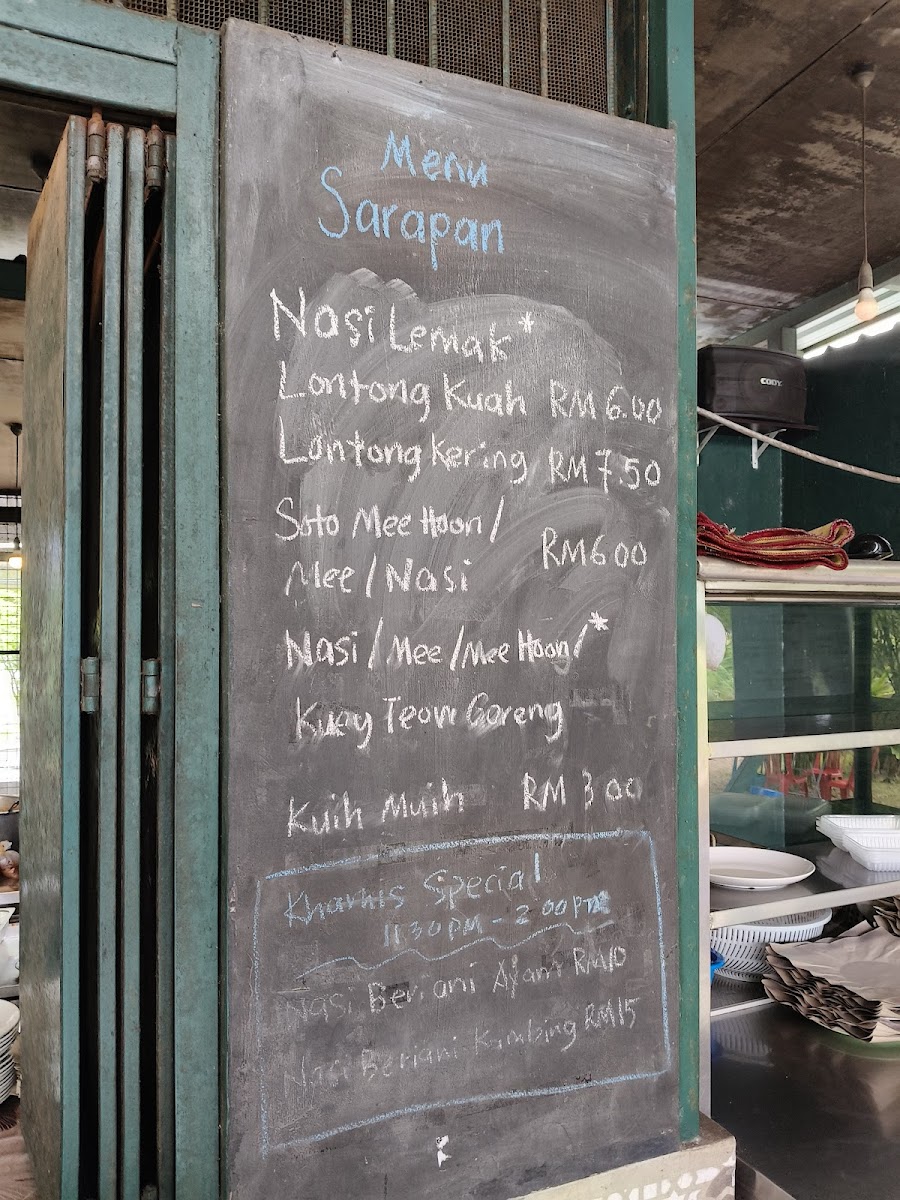 Menu
Sarapan
Nasi Lemak*
Lontong Kuah RM 6.00
Lontong Kering RM 7.50
Soto Mee Hoon/
Mee/Nasi RM 6 00
Nasi/Mee/Mee Hoon/*
Kuey Teow Goreng
Kuih Muih RM 3 00
Khamis Special
11 30 PM - 2 00 PM
Nasi Beriani Ayam RM10
Nasi Beriani Kambing RM15
CODY